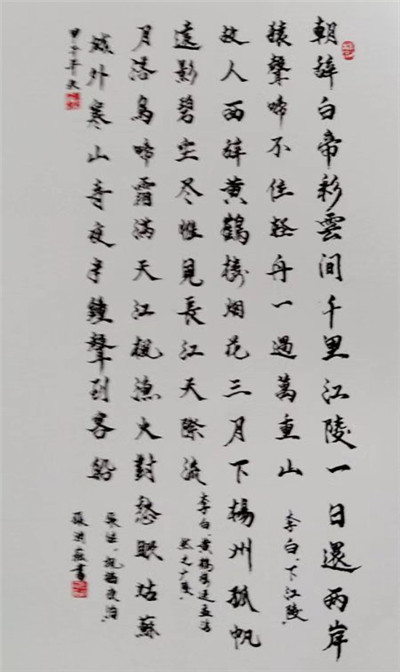 朝辞白帝彩雲间千里江陵一日還两岸
猿聲啼不住轻舟一過萬重山
李白、下江陵
故人西辞黄鶴楼烟花三月下揚州孤帆
遠影碧空尽惟見長江天際流
李白、黄鶴楼送孟浩
然之广陵
月落烏啼霜滿天江枫漁火對愁眠姑蘇
城外寒山寺夜半鐘聲到客船
張继、枫橋夜泊
甲年
張書